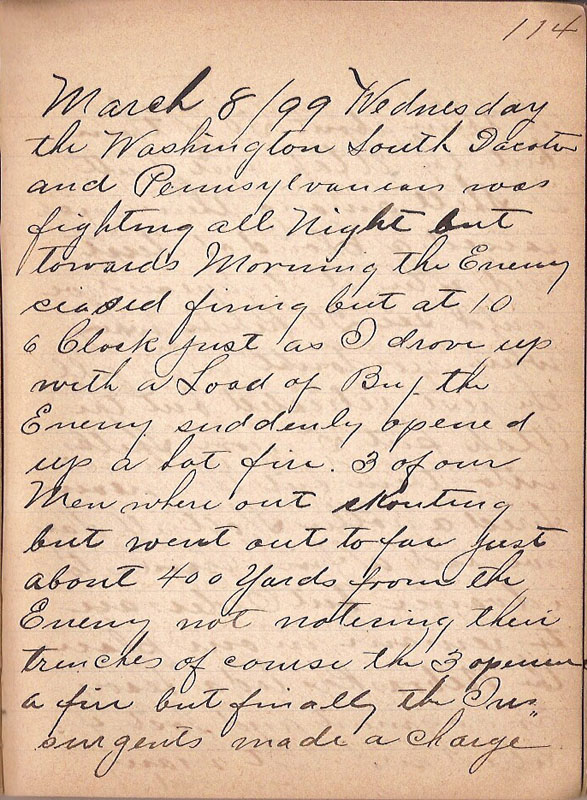 114
March 8/99 Wednesday
the Washington South Dacota
and Pennsylvaneans was
fighting all Night but
towards Morning the Enemy
ceased firing but at 10
o Clock just as I drove up
with a Load of the
Enemy suddenly opened
up a hot fire. 3 of our
Men where out skouting
but went out to far just
about 400 Yards from the
Enemy not notering their
trenches of course the 3 opened
a fire but finally the Ins"
surgents made a charge